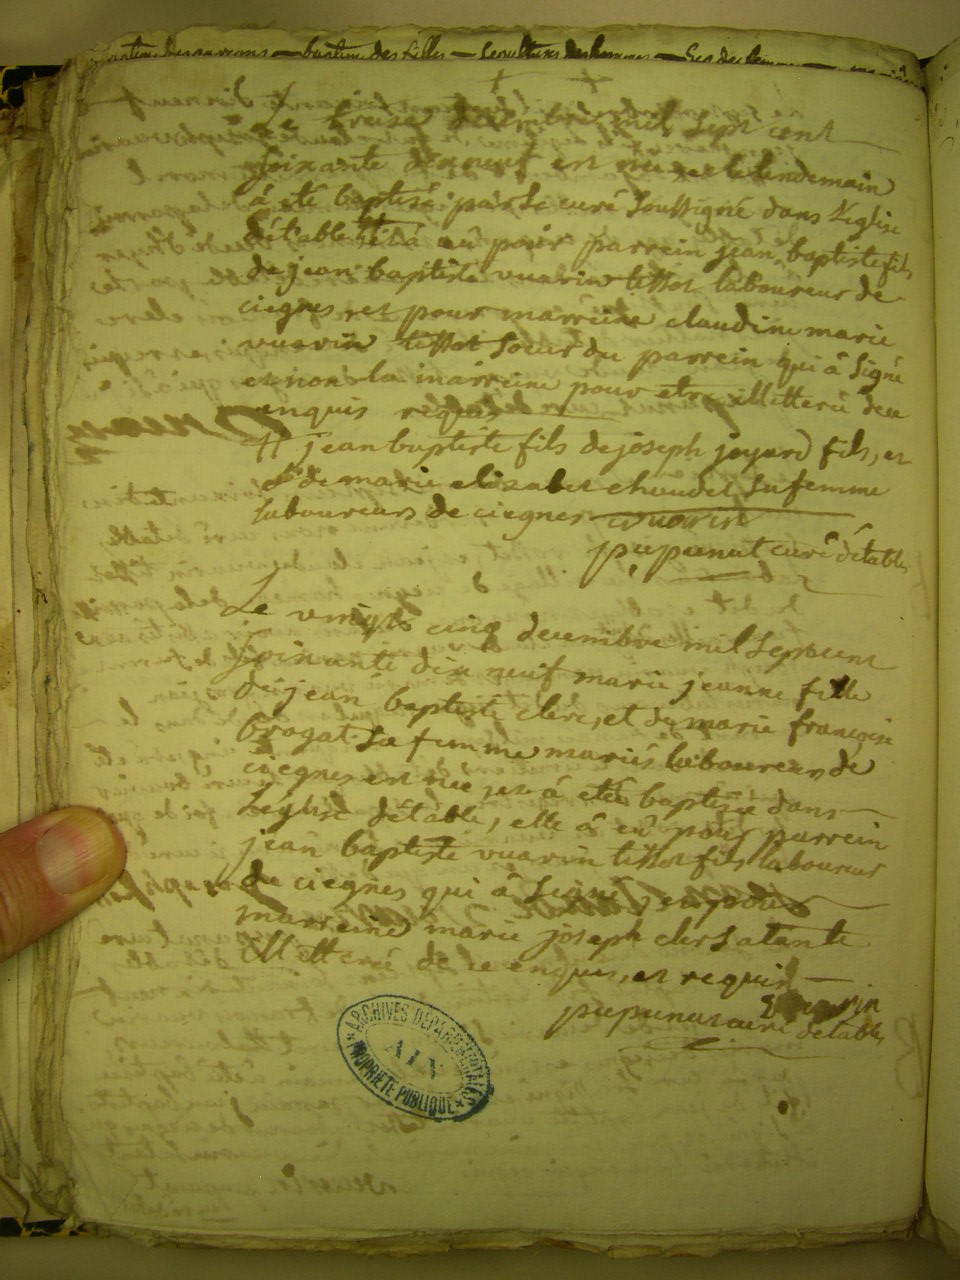 baptême des garcons — baptême des filles — sepultures des hommes — Sep des femmes —
Le treise decembre mil sept cent
soixante dixneuf est né et le lendemain
à eté baptisé par Le curé soussigné dans L'eglise
d'étable il à eû pour parrein jean baptiste fils
de jean baptiste vuarin tissot laboureur de
ciegnes, et pour marreine claudine marie
vuarin tissot soeur du parrein qui à signé
et non la marreine pour etre illitterée de ce
enquis requis
# jean baptiste fils de joseph joyard fils, et
de marie elizabet chaudet sa femme
laboureurs de ciegnes vuarin
pupunat curé d'étables
Le vingt cinq decembre mil Septcent
soixante dix neuf marie jeanne fille
de jean baptiste clerc, et de marie francoise
brogat sa femme mariés laboureurs de
ciegnes est née, et à eté baptisée dans
L'eglise d'étable, elle à eû pour parrein
jean baptiste vuarin tissot fils laboureur
de ciegnes qui à signé, et pour
marreine marie joseph clerc sa tante
illitterée de ce enquis, et requis —
vuarin
pupunat curé d'étables
ARCHIVES DEPARTEMENTALES
AIN
PROPRIETE PUBLIQUE